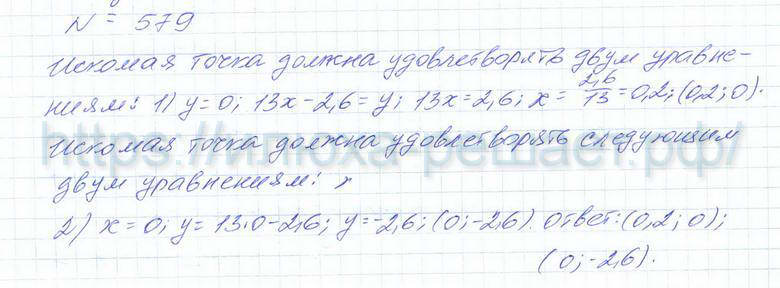 N = 579
Искомая точка должна удовлетворять двум уравне-
ниям: 1) y=0; 13x-2,6=y; 13x=2,6; x= 2,6/13 =0,2; (0,2; 0).
Искомая точка должна удовлетворять следующим
двум уравнениям:
2) x=0; y=13·0-2,6; y=-2,6; (0; -2,6). Ответ: (0,2; 0);
(0; -2,6).
https://илюха-решает.рф/